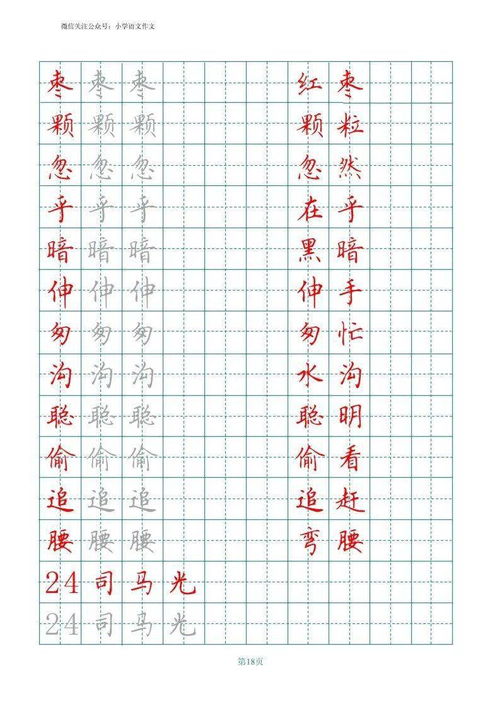 微信关注公众号：小学语文作文
枣枣枣 红枣
颗颗颗 颗粒
忽忽忽 忽然
乎乎乎 在乎
暗暗暗 黑暗
伸伸伸 伸手
匆匆匆 匆忙
沟沟沟 水沟
聪聪聪 聪明
偷偷偷 偷看
追追追 追赶
腰腰腰 弯腰
24司马光
24司马光
第18页